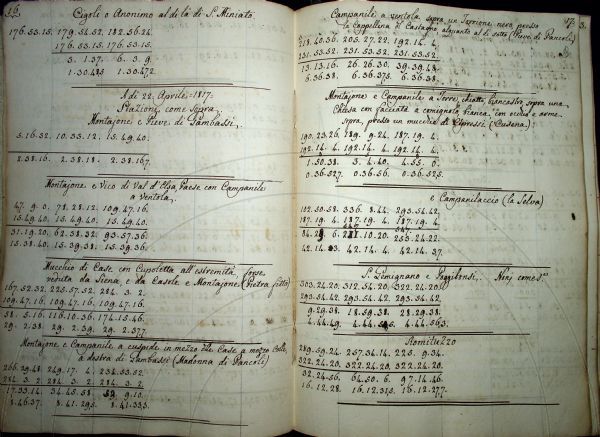 16.
Cigoli o Anonimo al di là di S. Miniato.
176.53.15. 179.54.52. 182.56.24.
176.53.15. 176.53.15.
3. 1.37. 6. 3. 9.
1.30.48. 1.30.47.
A di 22. Aprile 1817.
Stazione come sopra.
Montajone e Pieve di Gambassi.
5.16.32. 10.33.12. 15.49.40.
2.38.16. 2.38.18. 2.38.16.
Montajone e Vico di Val d'Elsa, Paese con Campanile
a ventola.
47. 9. 0. 78.28.12. 109.47.16.
15.49.40. 15.49.40. 15.49.40.
31.19.20. 62.38.32. 93.57.36.
15.38.40. 15.39.38. 15.39.36.
Mucchio di Case con Cupoletta all'estremità
veduta da Siena, e da Casole e Montajone (forse Pietra fitta)
167.52.32. 225.57.52. 284. 3. 2.
109.47.16. 109.47.16. 109.47.16.
58. 5.16. 116.10.36. 174.15.46.
29. 2.38. 29. 2.39. 29. 2.37.
Montajone e Campanile a cuspide in mezzo alle Case a mezzo Colle,
a destra di Gambassi (Madonna di Pancoli)
266.29.48. 249.17. 4. 234.53.52.
284. 3. 2. 284. 3. 2. 284. 3. 2.
17.33.14. 34.45.58. 9.10.
8.46.37. 8.41.29. 8.41.33.
17.
3.
Campanile a ventola sopra un Torrione nero presso
la Cappellina il Castagno, alquanto al di sotto (Pieve di Pancoli)
218.40.36. 205.27.22. 192.14. 4.
231.53.52. 231.53.52. 231.53.52.
13.13.16. 26.26.30. 39.39.48.
6.36.38. 6.36.37. 6.36.38.
Montajone e Campanile a Torre, chiatto, biancastro, sopra una
Chiesa con facciata a comignolo bianca, con occhio e arme
sopra, presso un mucchio di Cipressi (Cusona)
190.23.26. 189. 9.24. 187.19. 4.
192.14. 4. 192.14. 4. 192.14. 4.
1.50.38. 3. 4.40. 4.55. 0.
0.36.52. 0.36.56. 0.36.52.
e Campanilaccio (la Selva)
102.50.58. 336. 8.44. 293.54.42.
187.19. 4. 187.19. 4. 187.19. 4.
84.29. 6. 10.20. 253.24.22.
42.14. 42.14. 4. 42.14. 37.
S. Gimignano e Poggibonsi. Nonj come s.ª
303.24.20. 312.54.20. 322.24.20.
293.54.42. 293.54.42. 293.54.42.
9.29.38. 18.59.38. 28.29.38.
4.44.49. 4.44. 4.44.56.
Romituzzo
289.59.24. 257.34.14. 225. 9.34.
322.24.20. 322.24.20. 322.24.20.
32.24.56. 64.50. 6. 97.14.46.
16.12.28. 16.12.31. 16.12.27.